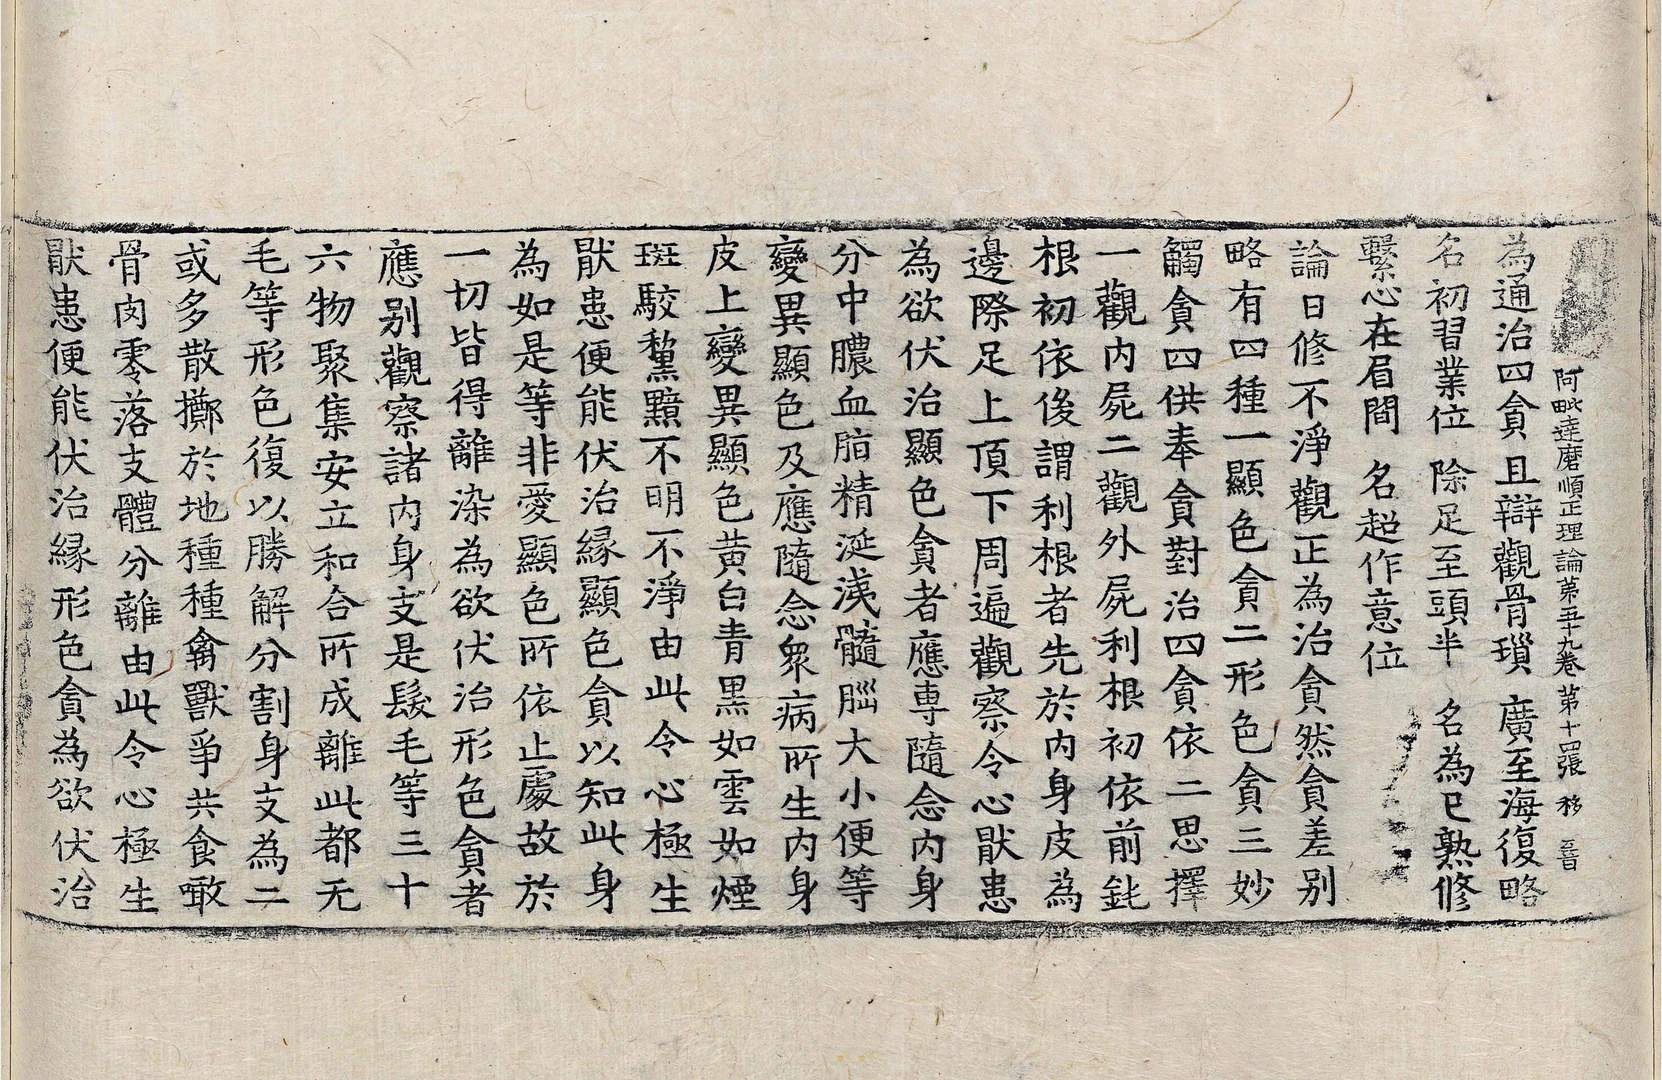 阿毗達磨順正理論第五十九卷 第十四張 移
為通治四貪 且辯觀骨瑣 廣至海復略
名初習業位 除足至頭半 名為已熟修
繫心在眉間 名超作意位
論曰修不淨觀正為治貪然貪差別
略有四種一顯色貪二形色貪三妙
觸貪四供奉貪對治四貪依二思擇
一觀內屍二觀外屍利根初依前鈍
根初依後謂利根者先於內身皮為
邊際足上頂下周遍觀察令心猒患
為欲伏治顯色貪者應專隨念內身
分中膿血脂精涎洟髓腦大小便等
變異顯色及應隨念眾病所生內身
皮上變異顯色黃白青黑如雲如煙
斑駮黧黯不明不淨由此令心極生
猒患便能伏治緣顯色貪以知此身
為如是等非愛顯色所依止處故於
一切皆得離染為欲伏治形色貪者
應別觀察諸內身支是髮毛等三十
六物聚集安立和合所成離此都无
毛等形色復以勝解分割身支為二
或多散擲於地種種禽獸爭共食噉
骨肉零落支體分離由此令心極生
猒患便能伏治緣形色貪為欲伏治